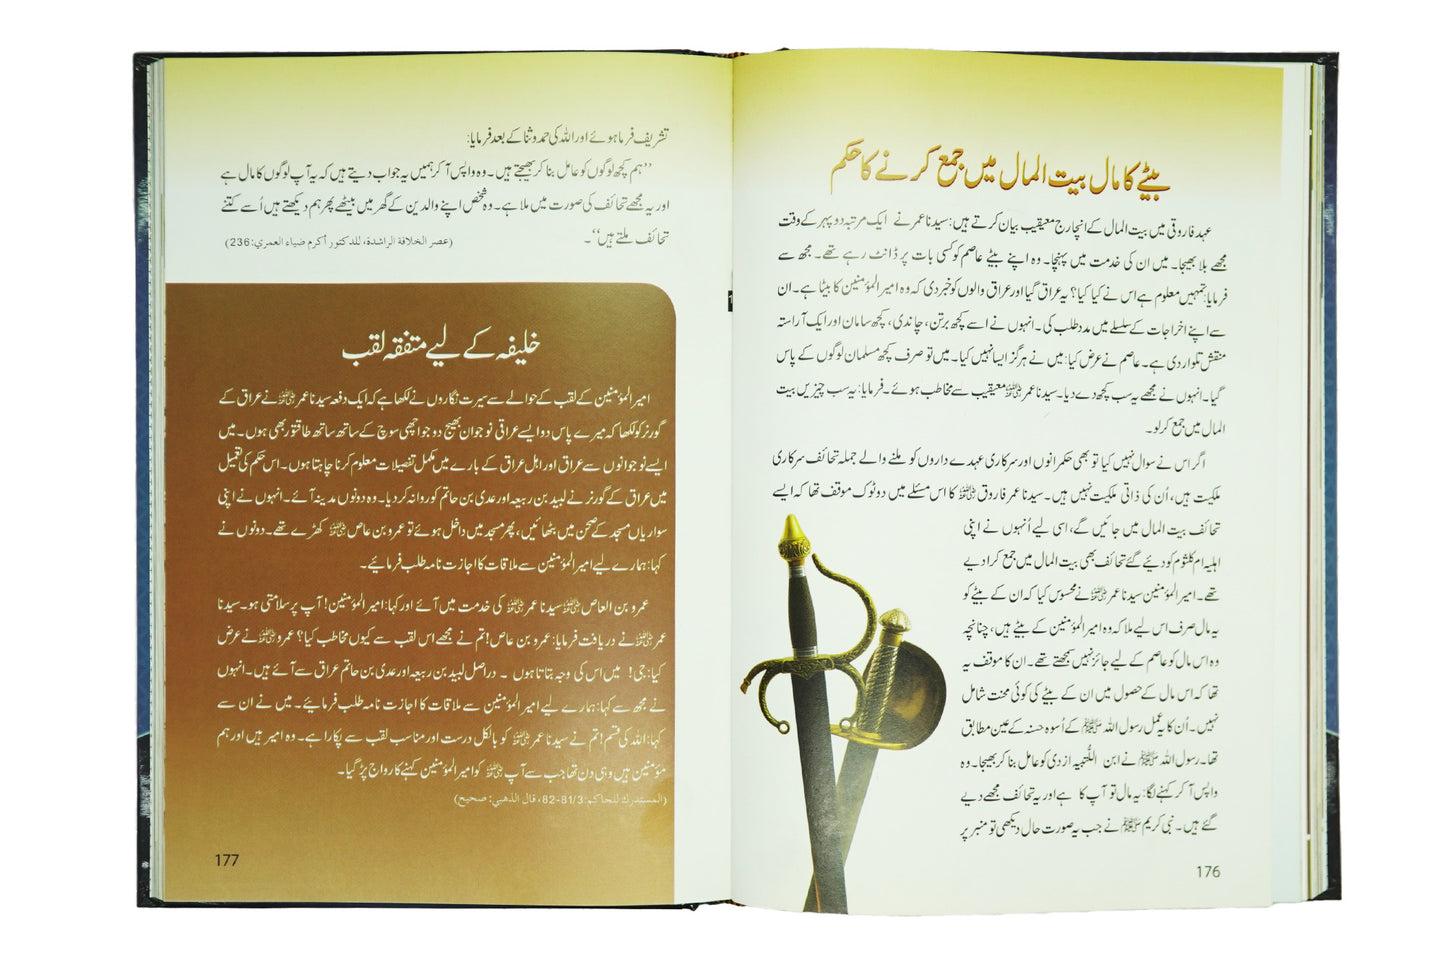 بیٹے کا مال بیت المال میں جمع کرنے کا حکم
عہد فاروقی میں بیت المال کے انچارج معیقیب بیان کرتے ہیں: سیدنا عمر نے ایک مرتبہ دوپہر کے وقت
مجھے بلا بھیجا۔ میں ان کی خدمت میں پہنچا۔ وہ اپنے بیٹے عاصم کو کسی بات پر ڈانٹ رہے تھے۔ مجھ سے
فرمایا: تمہیں معلوم ہے اس نے کیا کیا؟ یہ عراق گیا اور عراق والوں کو خبر دی کہ وہ امیر المؤمنین کا بیٹا ہے۔ ان
سے اپنے اخراجات کے سلسلے میں مدد طلب کی۔ انہوں نے اسے کچھ برتن، چاندی، کچھ سامان اور ایک آراستہ
منقش تلوار دی ہے۔ عاصم نے عرض کیا: میں نے ہرگز ایسا نہیں کیا۔ میں تو صرف کچھ مسلمان لوگوں کے پاس
گیا۔ انہوں نے مجھے یہ سب کچھ دے دیا۔ سیدنا عمر رضی اللہ عنہ معیقیب سے مخاطب ہوئے۔ فرمایا: یہ سب چیزیں بیت
المال میں جمع کر لو۔
اگر اس نے سوال نہیں کیا تو بھی حکمرانوں اور سرکاری عہدے داروں کو ملنے والے جملہ تحائف سرکاری
ملکیت ہیں، اُن کی ذاتی ملکیت نہیں ہیں۔ سیدنا عمر فاروق رضی اللہ عنہ کا اس مسئلے میں دو ٹوک موقف تھا کہ ایسے
تحائف بیت المال میں جائیں گے، اسی لیے اُنہوں نے اپنی
اہلیہ ام کلثوم کو دیے گئے تحائف بھی بیت المال میں جمع کرا دیے
تھے۔ امیر المؤمنین سیدنا عمر رضی اللہ عنہ نے محسوس کیا کہ ان کے بیٹے کو
یہ مال صرف اس لیے ملا کہ وہ امیر المؤمنین کے بیٹے ہیں؛ چنانچہ
وہ اس مال کو عاصم کے لیے جائز نہیں سمجھتے تھے۔ ان کا موقف یہ
تھا کہ اس مال کے حصول میں ان کے بیٹے کی کوئی محنت شامل
نہیں۔ اُن کا یہ عمل رسول اللہ ﷺ کے اُسوہ حسنہ کے عین مطابق
تھا۔ رسول اللہ ﷺ نے ابن اللُّتبیہ ازدی کو عامل بنا کر بھیجا۔ وہ
واپس آ کر کہنے لگا: یہ مال تو آپ کا ہے اور یہ تحائف مجھے دیے
گئے ہیں۔ نبی کریم ﷺ نے جب یہ صورت حال دیکھی تو منبر پر
176
تشریف فرما ہوئے اور اللہ کی حمد و ثنا کے بعد فرمایا:
”ہم کچھ لوگوں کو عامل بنا کر بھیجتے ہیں۔ وہ واپس آ کر ہمیں یہ جواب دیتے ہیں کہ یہ آپ لوگوں کا مال ہے
اور یہ مجھے تحائف کی صورت میں ملا ہے۔ وہ شخص اپنے والدین کے گھر میں بیٹھے پھر ہم دیکھتے ہیں اُسے کتنے
تحائف ملتے ہیں“۔ (عصر الخلافة الراشدة، للدكتور أكرم ضياء العمري:236)
خلیفہ کے لیے متفقہ لقب
امیر المؤمنین کے لقب کے حوالے سے سیرت نگاروں نے لکھا ہے کہ ایک دفعہ سیدنا عمر رضی اللہ عنہ نے عراق کے
گورنر کو لکھا کہ میرے پاس دو ایسے عراقی نوجوان بھیج دو جو اچھی سوچ کے ساتھ ساتھ طاقتور بھی ہوں۔ میں
ایسے نوجوانوں سے عراق اور اہل عراق کے بارے میں مکمل تفصیلات معلوم کرنا چاہتا ہوں۔ اس حکم کی تعمیل
میں عراق کے گورنر نے لبید بن ربیعہ اور عدی بن حاتم کو روانہ کر دیا۔ وہ دونوں مدینہ آئے۔ انہوں نے اپنی
سواریاں مسجد کے صحن میں بٹھائیں، پھر مسجد میں داخل ہوئے تو عمرو بن عاص رضی اللہ عنہ کھڑے تھے۔ دونوں نے
کہا: ہمارے لیے امیر المؤمنین سے ملاقات کا اجازت نامہ طلب فرمائیے۔
عمرو بن العاص رضی اللہ عنہ سیدنا عمر رضی اللہ عنہ کی خدمت میں آئے اور کہا: امیر المؤمنین! آپ پر سلامتی ہو۔ سیدنا
عمر رضی اللہ عنہ نے دریافت فرمایا: عمرو بن عاص! تم نے مجھے اس لقب سے کیوں مخاطب کیا؟ عمرو رضی اللہ عنہ نے عرض
کیا: جی! میں اس کی وجہ بتاتا ہوں ۔ دراصل لبید بن ربیعہ اور عدی بن حاتم عراق سے آئے ہیں۔ انہوں
نے مجھ سے کہا: ہمارے لیے امیر المؤمنین سے ملاقات کا اجازت نامہ طلب فرمائیے۔ میں نے ان سے
کہا: اللہ کی قسم! تم نے سیدنا عمر رضی اللہ عنہ کو بالکل درست اور مناسب لقب سے پکارا ہے۔ وہ امیر ہیں اور ہم
مؤمنین ہیں وہی دن تھا جب سے آپ رضی اللہ عنہ کو امیر المؤمنین کہنے کا رواج پڑ گیا۔
(المستدرك للحاكم:81/3-82، قال الذهبي: صحيح)
177